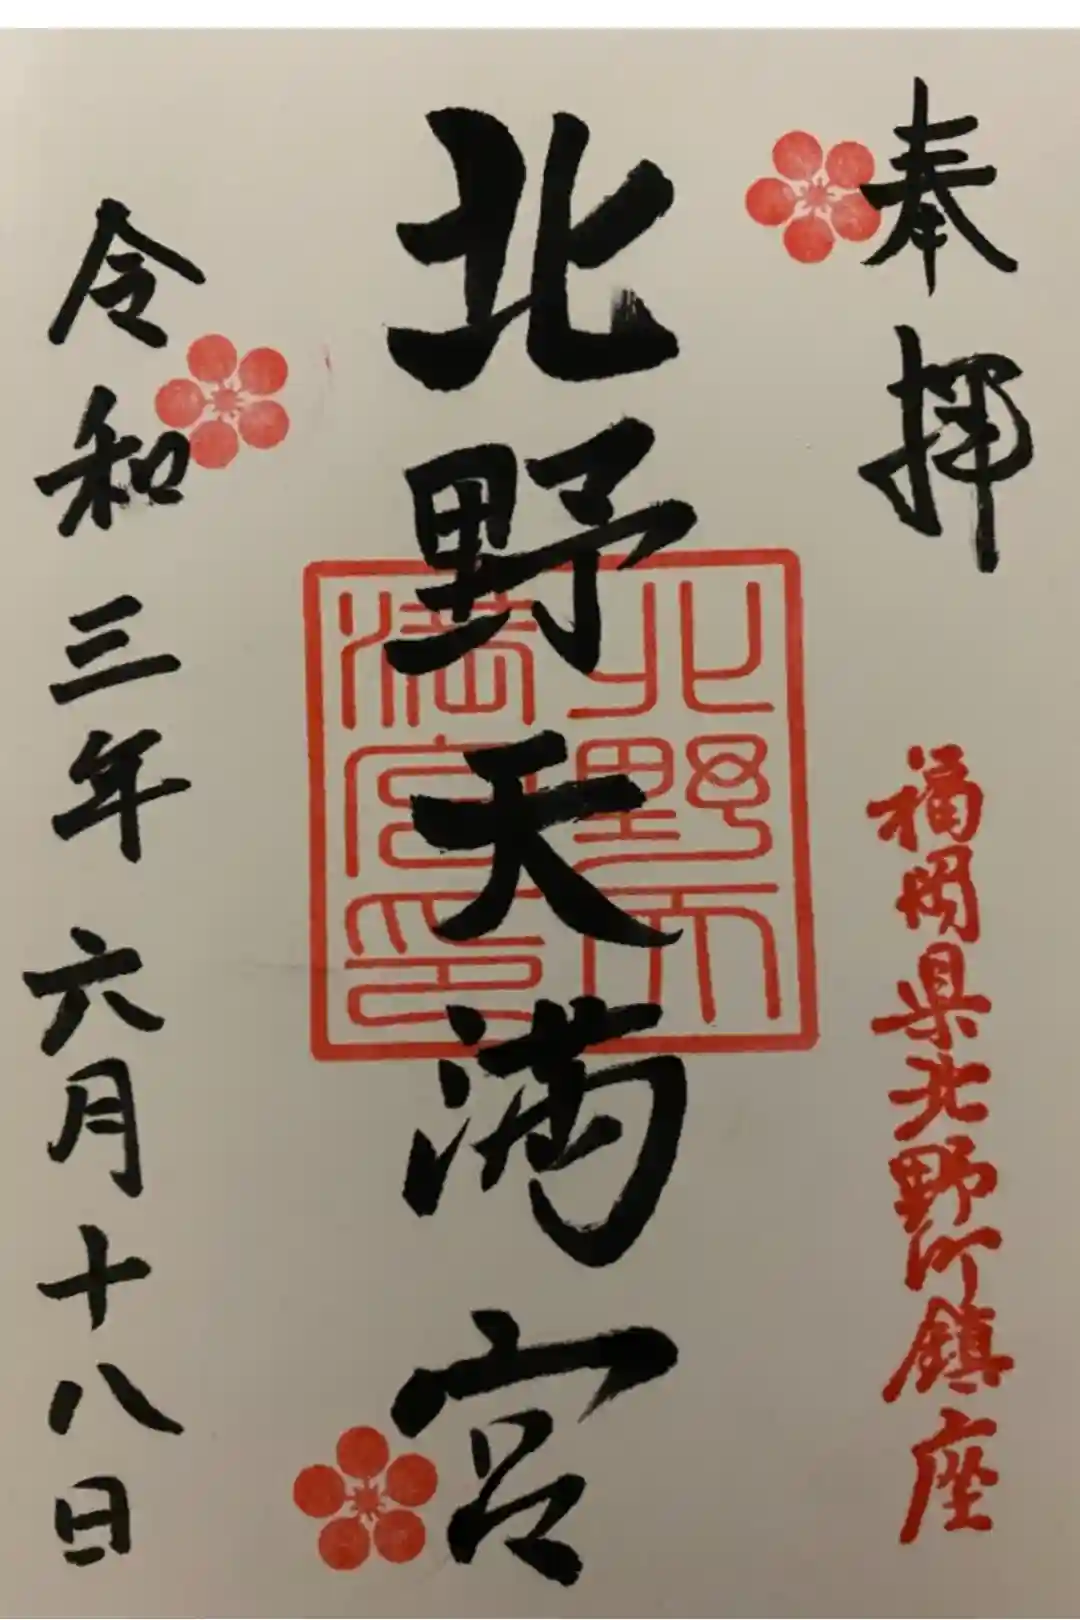 奉拝
福岡県北野町鎮座
北野天満宮
北野天
満宮印
令和三年六月十八日